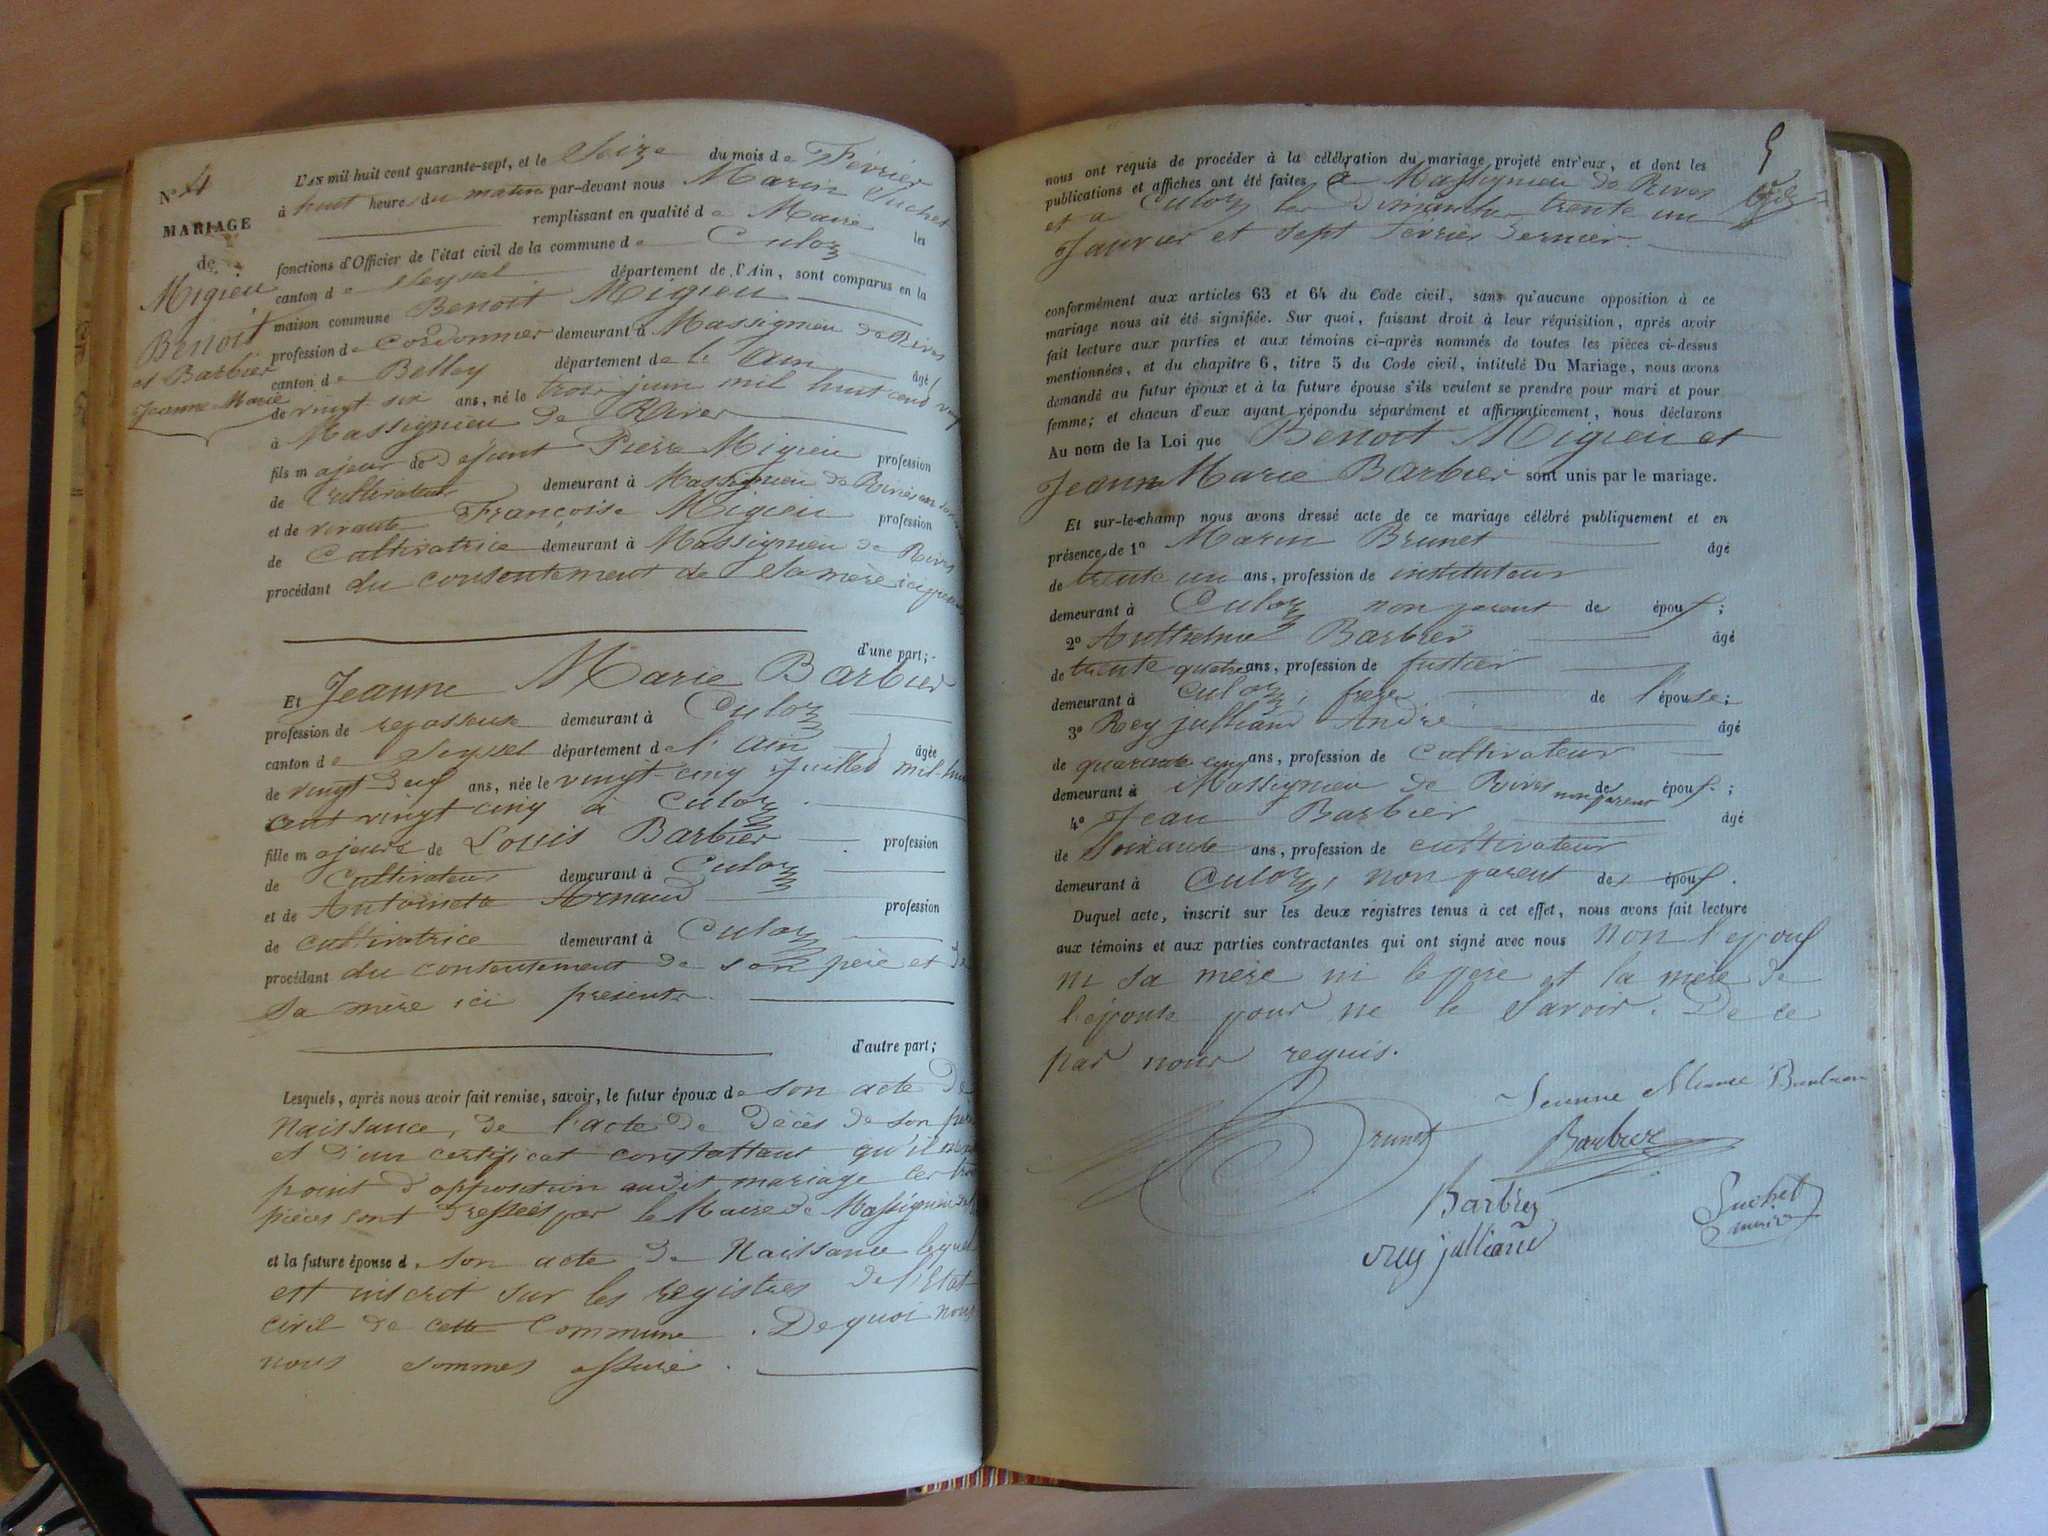 N° 4
MARIAGE
de
Migieu
Benoit
et Barbier
Jeanne Marie
L'AN mil huit cent quarante-sept, et le Seize du mois de Février
à huit heures du matin par-devant nous Marin Suchet
remplissant en qualité de Maire les
fonctions d'Officier de l'état civil de la commune de Culoz
canton de Seyssel département de l'Ain, sont comparus en la
maison commune Benoit Migieu
profession de Cordonnier demeurant à Massignieu de Rives
canton de Belley département de l'Ain âgé
de vingt six ans, né le trois juin mil huit cent vingt
à Massignieu de Rives
fils majeur de défunt Pierre Migieu profession
de Cultivateur demeurant à Massignieu de Rives en son
et de vivante Françoise Migieu profession
de Cultivatrice demeurant à Massignieu de Rives
procédant du consentement de Sa mère ici
d'une part;
Et Jeanne Marie Barbier
profession de repasseuse demeurant à Culoz
canton de Seyssel département de l'Ain âgée
de vingt-deux ans, née le vingt-cinq Juillet mil-huit
cent vingt cinq à Culoz
fille majeure de Louis Barbier profession
de Cultivateur demeurant à Culoz
et de Antoinette Arnaud profession
de cultivatrice demeurant à Culoz
procédant du consentement de son père et de
Sa mère ici présents.
d'autre part;
Lesquels, après nous avoir fait remise, savoir, le futur époux de son acte de
Naissance, de l'acte de décès de son père
et d'un certificat constattant qu'il n'y a
point d'opposition audit mariage les trois
pièces sont dressées par le Maire de Massignieu
et la future épouse de son acte de Naissance lequel
est inscrit sur les registres de l'Etat
civil de cette Commune. De quoi nous
nous sommes assuré.
5
nous ont requis de procéder à la célébration du mariage projeté entr'eux, et dont les
publications et affiches ont été faites à Massignieu de Rives
et à Culoz les Dimanches trente un
Janvier et Sept Février dernier.
conformément aux articles 63 et 64 du Code civil, sans qu'aucune opposition à ce
mariage nous ait été signifiée. Sur quoi, faisant droit à leur réquisition, après avoir
fait lecture aux parties et aux témoins ci-après nommés de toutes les pièces ci-dessus
mentionnées, et du chapitre 6, titre 5 du Code civil, intitulé Du Mariage, nous avons
demandé au futur époux et à la future épouse s'ils veulent se prendre pour mari et pour
femme; et chacun d'eux ayant répondu séparément et affirmativement, nous déclarons
Au nom de la Loi que Benoit Migieu et
Jeanne Marie Barbier sont unis par le mariage.
Et sur-le-champ nous avons dressé acte de ce mariage célébré publiquement et en
présence de 1° Marin Brunet âgé
de trente un ans, profession de instituteur
demeurant à Culoz non parent de époux;
2° Anthelme Barbier âgé
de trente quatre ans, profession de fustier
demeurant à Culoz, frère de l'épouse;
3° Rey julliand André âgé
de quarante cinq ans, profession de cultivateur
demeurant à Massignieu de Rives non parent de époux;
4° Jean Barbier âgé
de Soixante ans, profession de cultivateur
demeurant à Culoz, non parent des époux.
Duquel acte, inscrit sur les deux régistres tenus à cet effet, nous avons fait lecture
aux témoins et aux parties contractantes qui ont signé avec nous non l'époux
ni sa mère ni le père et la mère de
l'épouse pour ne le Savoir. De ce
par nous requis.
Jeanne Marie Barbier
Brunet
Barbier
Barbier
Suchet
maire
rey julliand